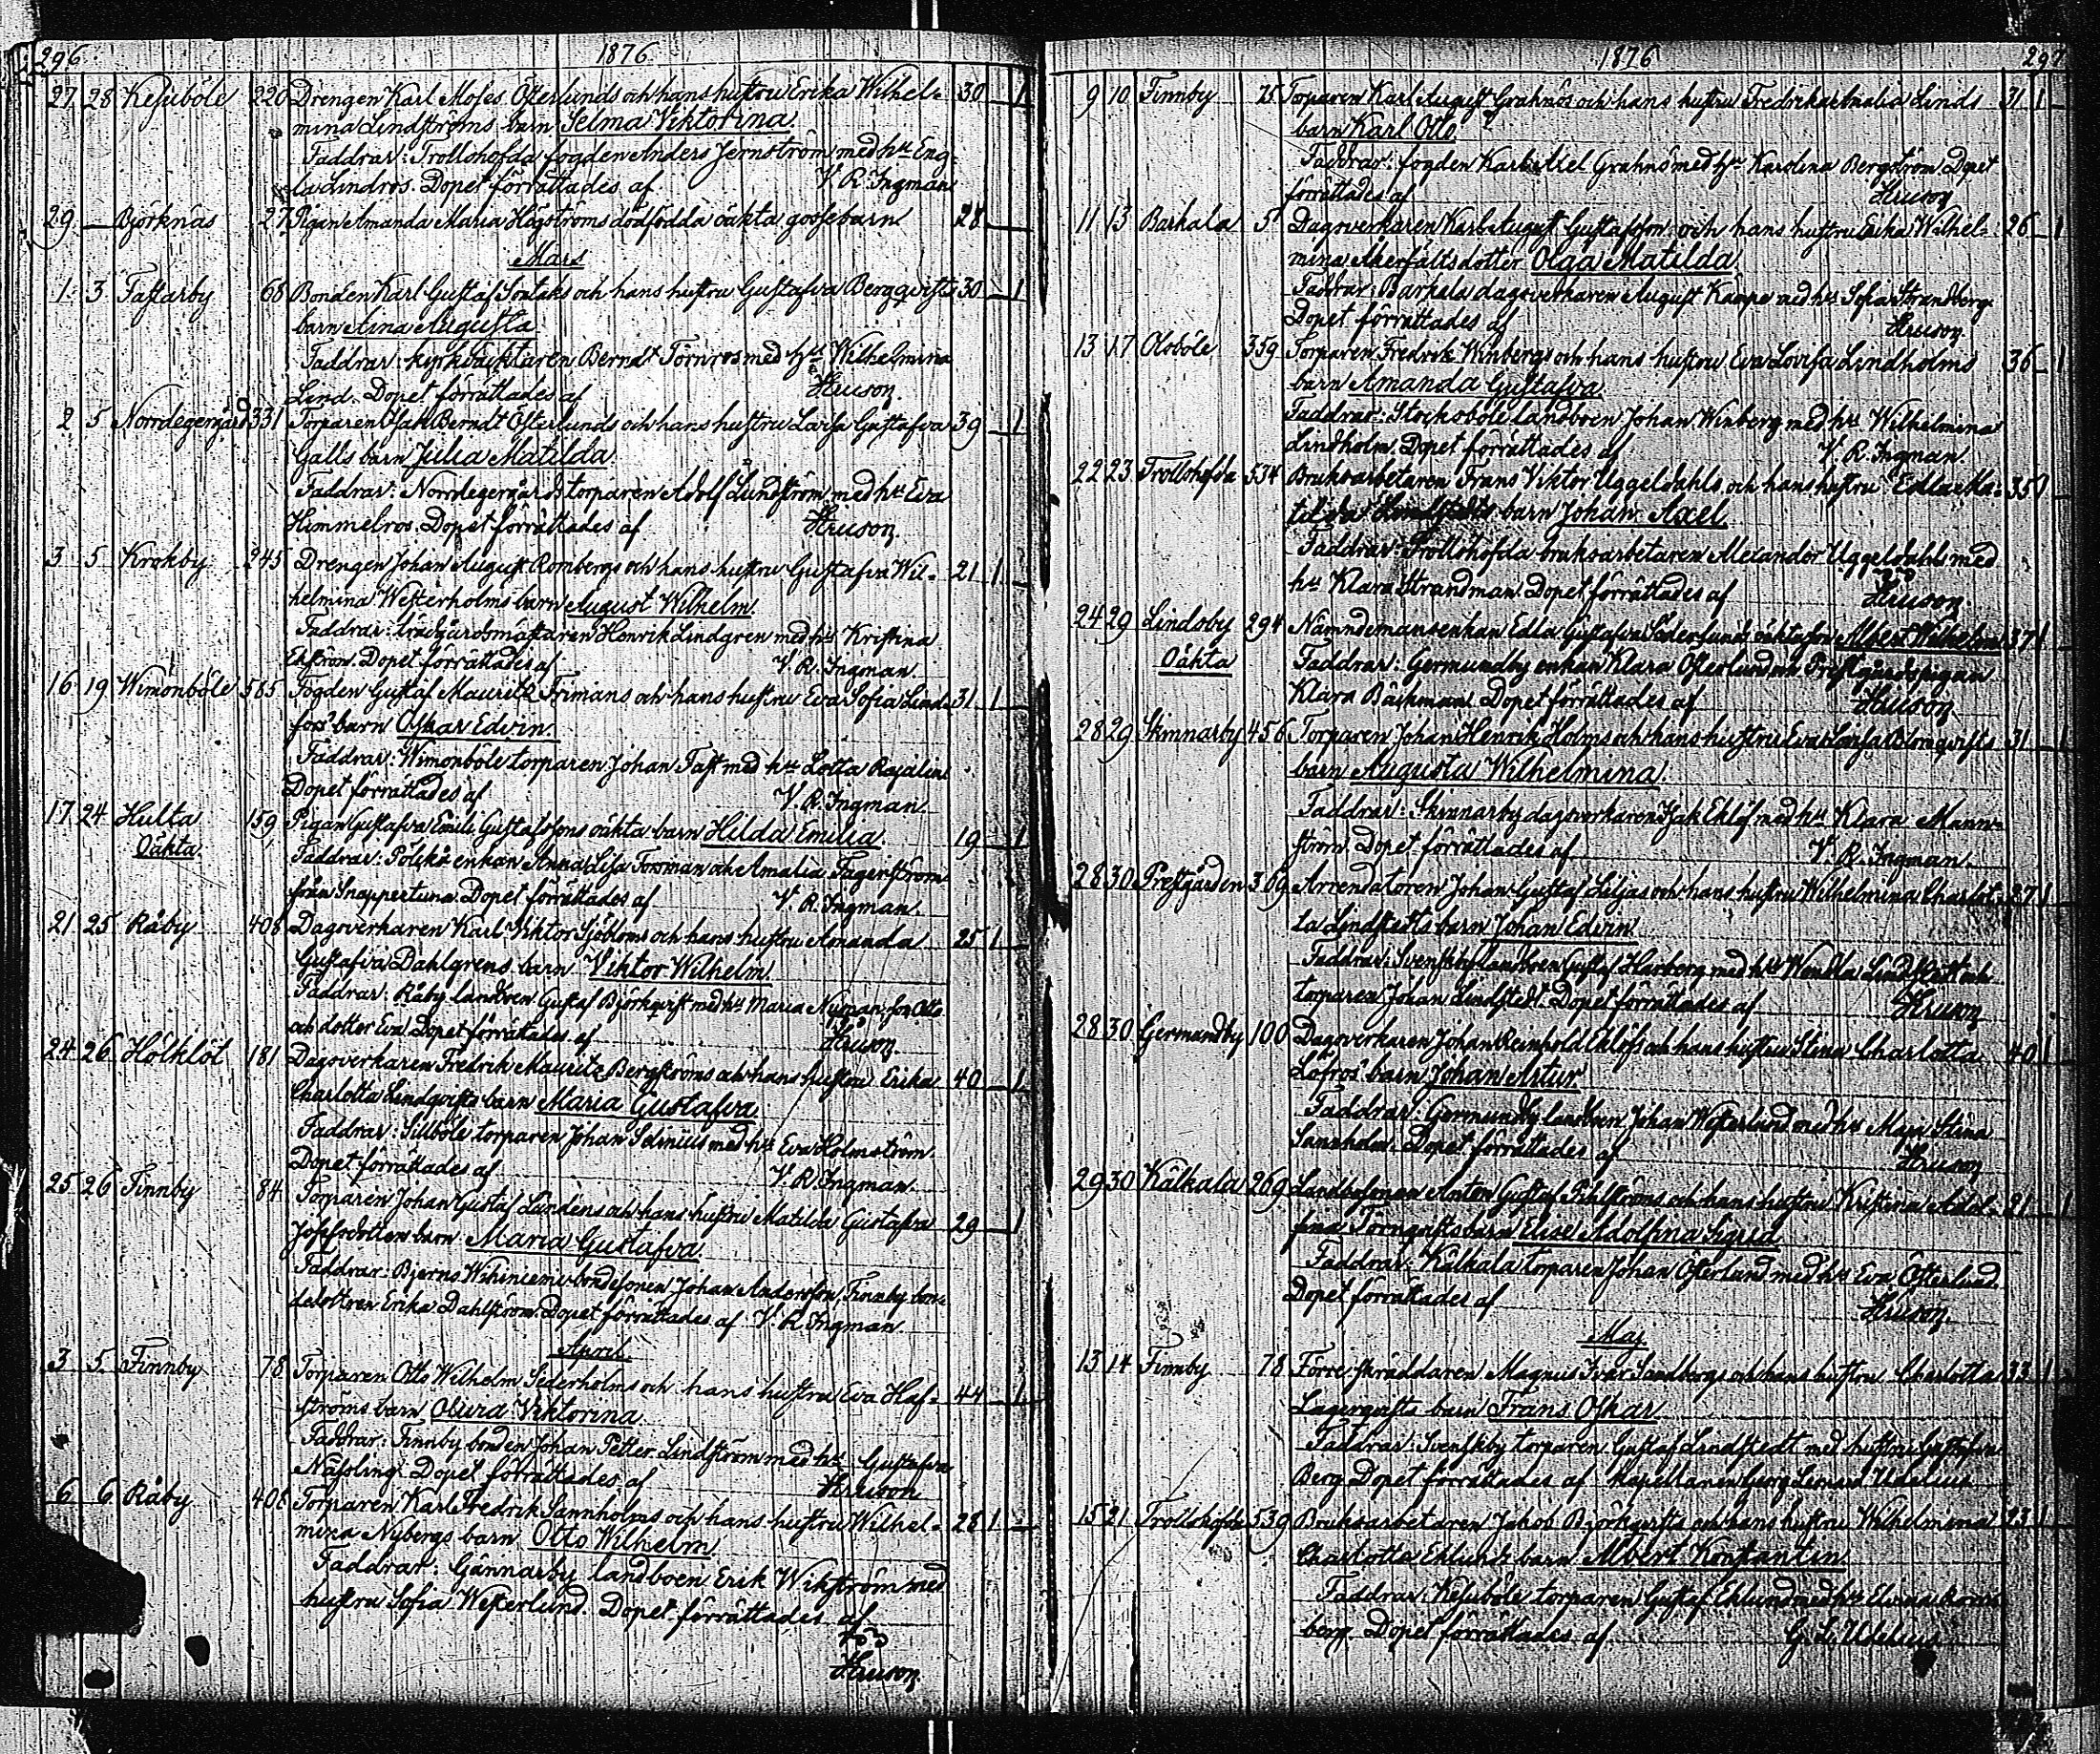 296 1876
27 28 Kesuböle 220 Drengen Karl Moses Österlunds och hans hustru Erika Wilhel- 30 1
mina Lindströms barn Selma Viktorina.
Faddrar: Trollshofda fogden Anders Jernström med h:u Eng-
la Lindros. Dopet förrättades af V. R. Ingman
29 Björknäs 27 Pigan Amanda Maria Högströms dödfödda oäkta gossebarn 28
Mars
1 3 Tastarby 68 Bonden Karl Gustaf och hans hustru Gustafva Bergqvists 30 1
barn Aina Augusta
Faddrar: kyrkväktaren Berndt Törnros med h:u Wilhelmina
Lind. Dopet förrättades af
2 5 Norrdegergård 331 Torparen Isak Berndt Österlunds och hans hustru Lovisa Gustafva 39 1
Galls barn Julia Matilda
Faddrar: Norrdegergårds torparen Adolf Lundström med h:u Eva
Himmelros. Dopet förrättades af
3 5 Krokby 245 Drengen Johan August Rombergs och hans hustru Gustafva Wil- 21 1
helmina Westerholms barn August Wilhelm.
Faddrar: trädgårdsmästaren Henrik Lindgren med h:u Kristina
Ekström. Dopet förrättades af V. R. Ingman.
16 19 Wimonböle 585 Fogden Gustaf Mauritz Frimans och hans hustru Eva Sofia Lind- 31 1
fors barn Oskar Edvin.
Faddrar: Wimonböle torparen Johan Fast med h:u Lotta Rajalin
Dopet förrättades af V. R. Ingman.
17 24 Hulta 159 Pigan Gustafva Emili Gustafssons oäkta barn Hilda Emilia. 19 1
Oäkta. Faddrar: Pölskä enkan Anna Lisa Forsman och Amalia Fagerström
från Snappertuna. Dopet förrättades af V. R. Ingman.
21 25 Råby 408 Dagsverkaren Karl Viktor Sjöbloms och hans hustru Amanda 25 1
Gustafva Dahlgrens barn Viktor Wilhelm.
Faddrar: Råby landboen Gustaf Björkqvist med h:u Maria Nyman, son Otto
och dotter Eva. Dopet förrättades af
24 26 Hölklöt 181 Dagsverkaren Fredrik Mauritz Bergströms och hans hustru Erika 40 1
Charlotta Lindqvists barn Maria Gustafva
Faddrar: Silböle torparen Johan Selinius med h:u Eva Holmström.
Dopet förrättades af V. R. Ingman.
25 26 Finnby 84 Torparen Johan Gustaf Lindéns och hans hustru Matilda Gustafva 29 1
Josefsdotters barn Maria Gustafva.
Faddrar: Bjerns bondesonen Johan Andersson, Finnby bon-
dedottren Erika Dahlström. Dopet förrättades af V. R. Ingman.
April
3 5 Finnby 78 Torparen Otto Wilhelm Sederholms och hans hustru Eva Haf- 44 1
ströms barn Viktorina.
Faddrar: Finnby bonden Johan Petter Lindström med h:u Gustafva
Näsling. Dopet förrättades af
6 6 Råby 408 Torparen Karl Fredrik Sannholms och hans hustru Wilhel- 28 1
mina Nybergs barn Otto Wilhelm
Faddrar: Gännarby landboen Erik Wikström med
hustru Sofia Westerlund. Dopet förrättades af
1876 297
9 10 Finnby 75 Torparen Karl August Grahns och hans hustru Fredrika Amalia Linds 31 1
barn Karl Otto
Faddrar: fogden Karl Axel Grahn med h:u Karolina Bergström Dopet
förrättades af
11 13 Barkala 5 Dagsverkaren Karl August Gustafsson och hans hustru Erika Wilhel- 26 1
mina Åkerfältsdotter Olga Matilda
Faddrar: Barkala dagsverkaren August Kämpe med h:u Sofia Strandberg.
Dopet förrättades af
13 17 Olsböle 359 Torparen Fredrik Winbergs och hans hustru Eva Lovisa Lindholms 36 1
barn Amanda Gustafva.
Faddrar: Stocksböle landboen Johan Winberg med h:u Wilhelmina
Lindholm. Dopet förrättades af V. R. Ingman.
22 23 Trollshofda 534 Bruksarbetaren Frans Viktor Uggeldahls och hans hustru Edla Ma- 35 1
tilda barn Johan Axel
Faddrar: Trollshofda bruksarbetaren Alexander Uggeldahl med
h:u Klara Strandman. Dopet förrättades af
24 29 Lindsby 294 Nämndemansenkan Edla Gustafva Söderlunds oäkta son Albert Wilhelm 37 1
Oäkta Faddrar: Germundby enkan Klara Österlund och Prestgårdspigan
Klara Bäckman. Dopet förrättades af
28 29 Skinnarby 456 Torparen Johan Henrik Holms och hans hustru Eva Lovisa Blomqvists 31 1
barn Augusta Wilhelmina.
Faddrar: Skinnarby dagsverkaren Isak Eklöf med h:u Klara Mann-
ström. Dopet förrättades af V. R. Ingman.
28 30 Prestgården 369 Arrendatoren Johan Gustaf Liljas och hans hustru Wilhelmina Charlot- 27 1
ta Lindstedts barn Johan Edvin.
Faddrar: Svenskby landboen Gustaf Harberg med h:u Wendla Lindstedt och
torparen Johan Lindstedt. Dopet förrättades af
28 30 Germundby 100 Dagsverkaren Johan Reinhold Eklöfs och hans hustru Stina Charlotta 40 1
Löfros barn Johan Artur.
Faddrar: Germundby landboen Johan Westerlund med h:u Maja Stina
Sannholm. Dopet förrättades af
29 30 Kälkala 269 Landbosonen Anton Gustaf och hans hustru Kristina Adol- 21 1
fina Törnqvists barn Elise Adolfina Sigrid
Faddrar: Kälkala torparen Johan Österlund med h:u Eva Österlund.
Dopet förrättades af
Maj.
13 14 Finnby 78 Förre skräddaren Magnus Ivar Sandbergs och hans hustru Charlotta 33 1
Lagerqvists barn Frans Oskar
Faddrar: Svenskby torparen Gustaf Lindstedt med hustru Gustafva
Berg. Dopet förrättades af Kapellanen Georg Leonard Udelius
15 21 Trollshofda 539 Bruksarbetaren Jakob Björkqvists och hans hustru Wilhelmina 23 1
Charlotta Eklunds barn Albert Konstantin.
Faddrar: Kesuböle torparen Gustaf Eklund med h:u Elvina Rom-
berg. Dopet förrättades af G. L. Udelius.